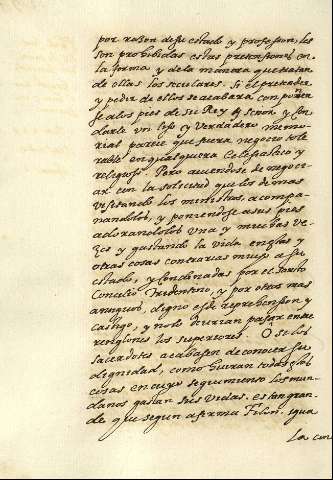 por razon de su estado y profesion, les
son prohibidas estas pretensiones en
la forma y de la manera que tratan
de ellas los seculares. Si el pretender
y pedir de ellos se acabara con poner
se a los pies de su Rey y Señor y con
darle un leso y verdadero memo-
rial parece que fuera negocio tole
rable en qualquiera eclesiastico y
religioso. Pero auiendose de negoci-
ar con la solicitud que los demas
visitando los ministros, acompa-
ñandolos, y poniendose a sus pies
adorandolos una y muchas ve-
zes y gastando la vida en esto y
otras cosas contrarias muy a su
estado, y condenadas por el santo
Concilio Tridentino, y por otros mas
antiguos, digno es de reprehension y
castigo, y no lo deurian pasar entre
religiones los superiores. O si los
sacerdotes acabasen de conocer su
dignidad, como huirian todas las
cosas en cuyo seguimiento los mun
danos gastan sus vidas. es tan gran
de que segun afirma Filon. igua
La con